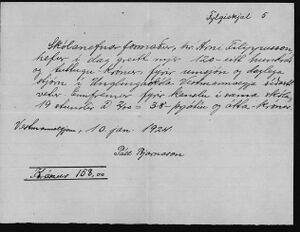 Fylgiskjal 5
Skólanefndar formaður, hr. Árni Filippusson,
hefir í dag greitt mjer 120 - eitt hundrað
og tuttugu krónur fyrir umsjón og daglega
stjórn í Unglingaskóla Vestmannaeyja
vetur. Ennfremur fyrir kenslu í sama skóla,
19 stundir á 2/00 = 38 - þrjátíu og átta - krónur
Vestmannaeyjum, 10. jan. 1924.
Páll Bjarnason
Krónur 158,00